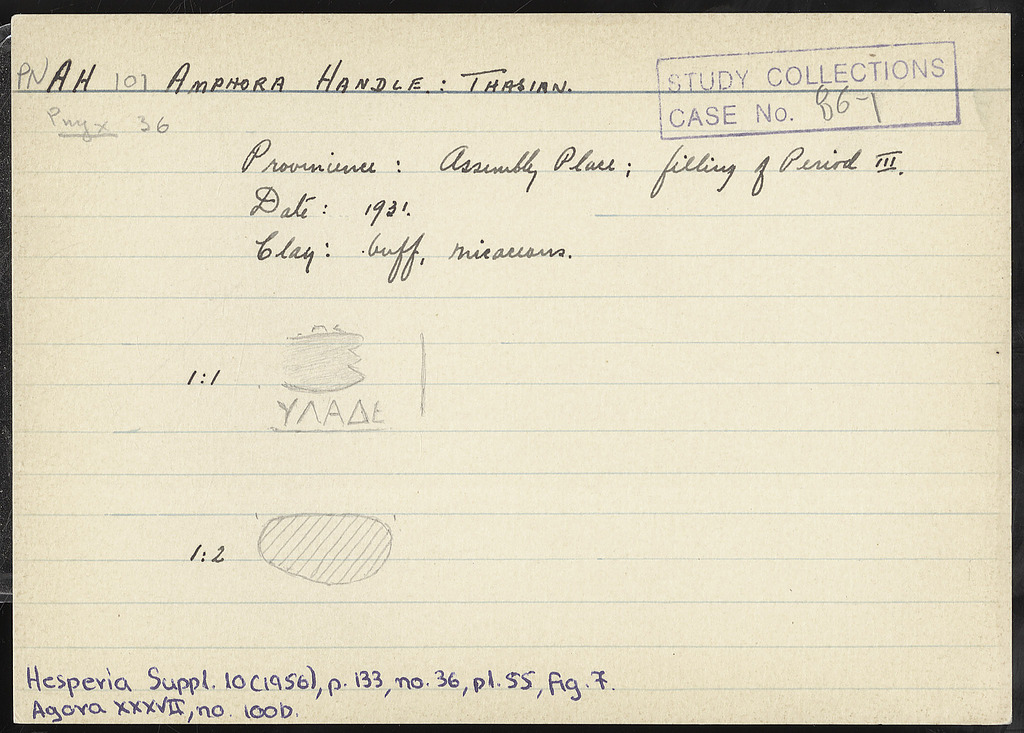 PN AH 101 AMPHORA HANDLE : THASIAN.
STUDY COLLECTIONS
CASE No. 86-1
Pnyx 36
Provinience : Assembly Place ; filling of Period III.
Date : 1931.
Clay : buff, micaceous.
1:1
ΥΛΑΔΕ
1:2
Hesperia Suppl. 10 (1956), p. 133, no. 36, pl. 55, fig. 7.
Agora XXXVII, no. 100b.